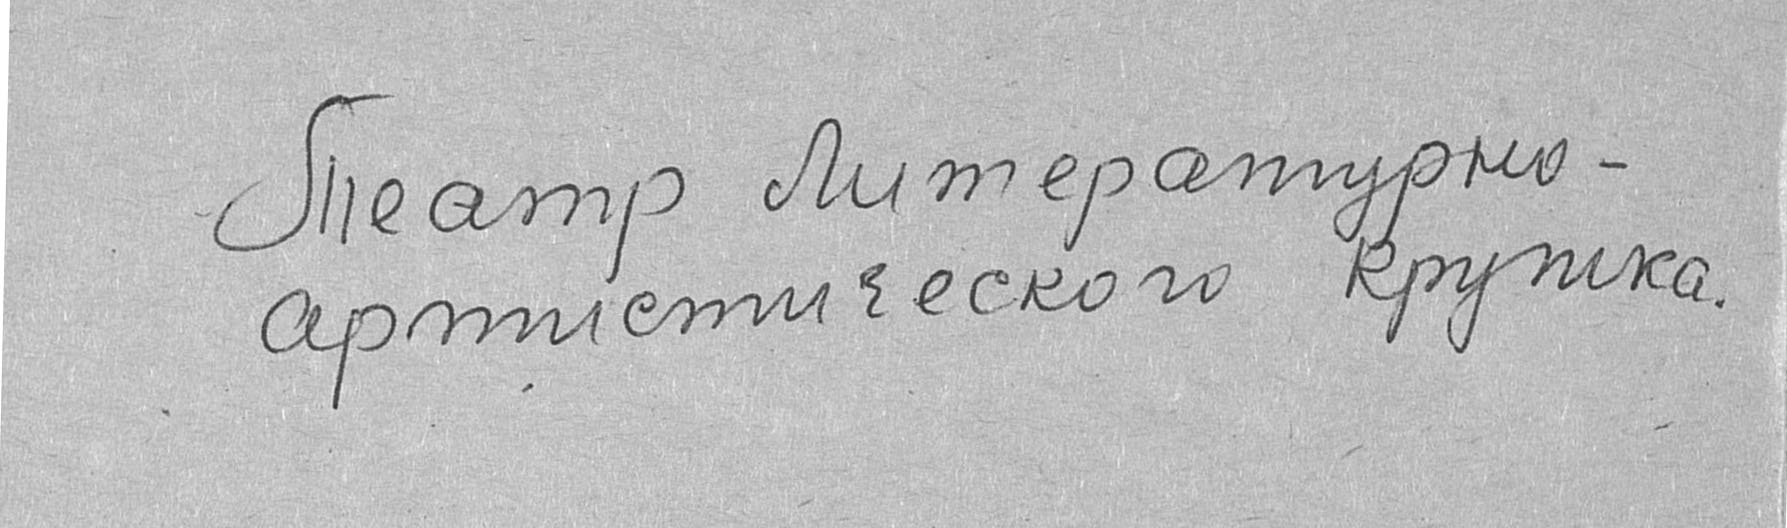 Театр Литературно-
артистического кружка.